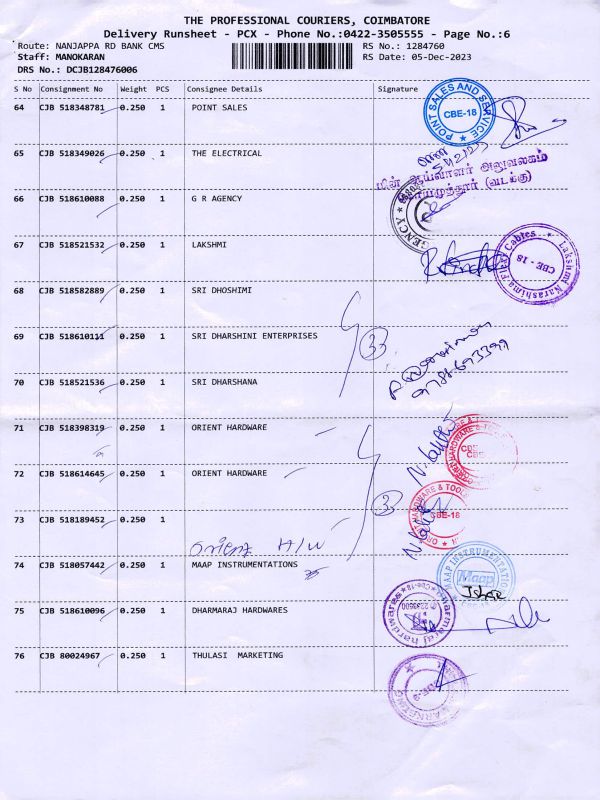 THE PROFESSIONAL COURIERS, COIMBATORE
Delivery Runsheet - PCX - Phone No.:0422-3505555 - Page No.:6
Route: NANJAPPA RD BANK CMS RS No.: 1284760
Staff: MANOKARAN RS Date: 05-Dec-2023
DRS No.: DCJB128476006
S No Consignment No Weight PCS Consignee Details Signature
64 CJB 518348781 0.250 1 POINT SALES
POINT SALES AND SERVICE
CBE-18
65 CJB 518349026 0.250 1 THE ELECTRICAL
மின் ஆய்வாளர் அலுவலகம்
கோயமுத்தூர் (வடக்கு)
66 CJB 518610088 0.250 1 G R AGENCY
67 CJB 518521532 0.250 1 LAKSHMI
Lakshmi Narashima Flexi Cables
CBE - 18
68 CJB 518582889 0.250 1 SRI DHOSHIMI
69 CJB 518610111 0.250 1 SRI DHARSHINI ENTERPRISES
3
70 CJB 518521536 0.250 1 SRI DHARSHANA
71 CJB 518398319 0.250 1 ORIENT HARDWARE
72 CJB 518614645 0.250 1 ORIENT HARDWARE
3
CBE-18
73 CJB 518189452 0.250 1
Orient H/W
74 CJB 518057442 0.250 1 MAAP INSTRUMENTATIONS
MAAP INSTRUMENTATION
Maap
75 CJB 518610096 0.250 1 DHARMARAJ HARDWARES
Dharmaraj hardwares
Cbe-18
76 CJB 80024967 0.250 1 THULASI MARKETING